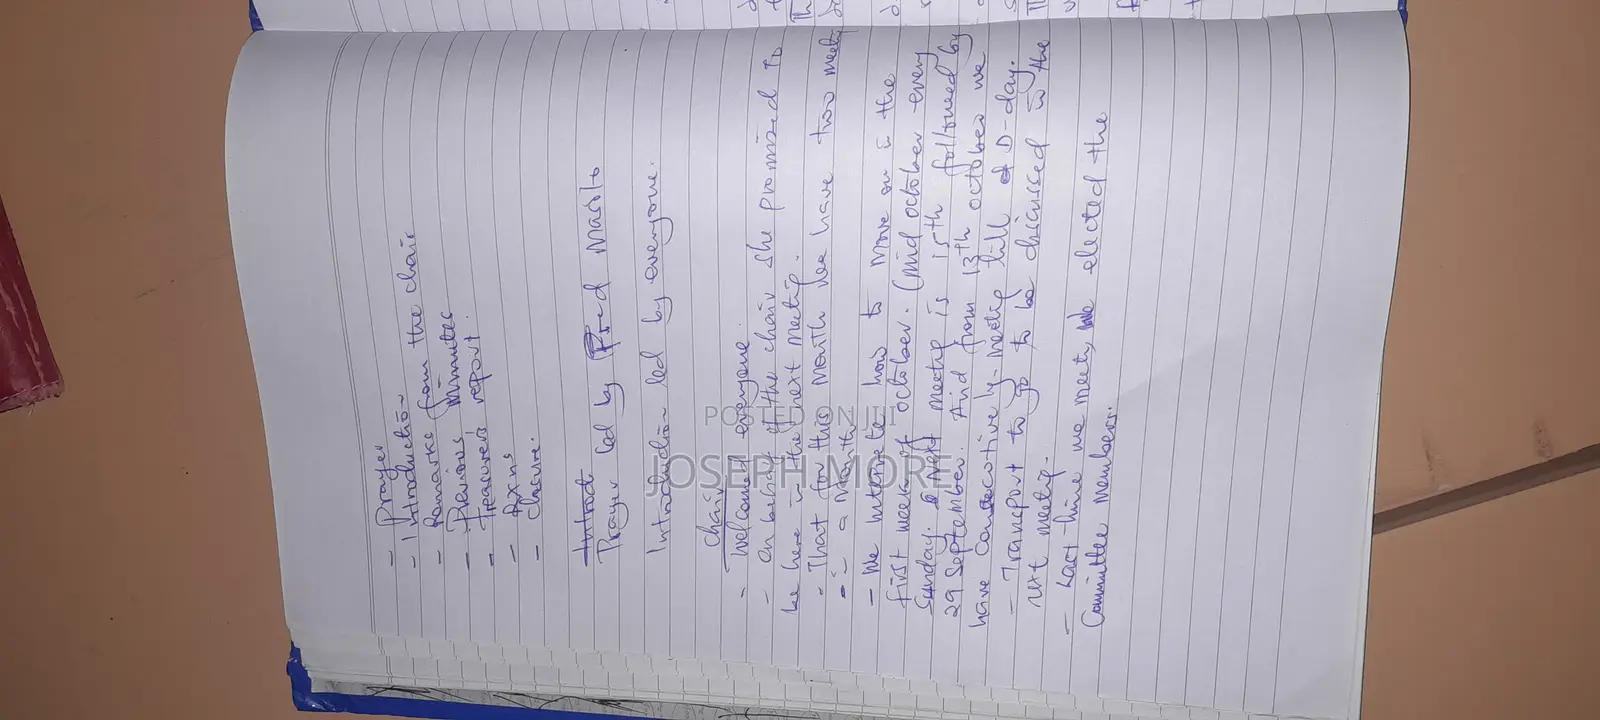 - Prayer
- Introduction
- Remarks from the chair
- Previous minutes
- Treasurers report.
- Axns
- Closure.
Introd
Prayer led by Fred Masilo
Introduction led by everyone.
Chair
- Welcomed everyone.
- On behalf of the chair she promised to
be here in the next meetig.
- That for this month we have two meetig
in a month
- We how to move on in the
first week of october. (mid october every
Sunday. Next meeting is 15th followed by
29 September. And from 13th october we
have consecutively meetig till D-day.
- Transport to go to be discussed in the
next meetig.
- Last time we meet, we elected the
Committee members.
POSTED ON JIJI
JOSEPH MORE